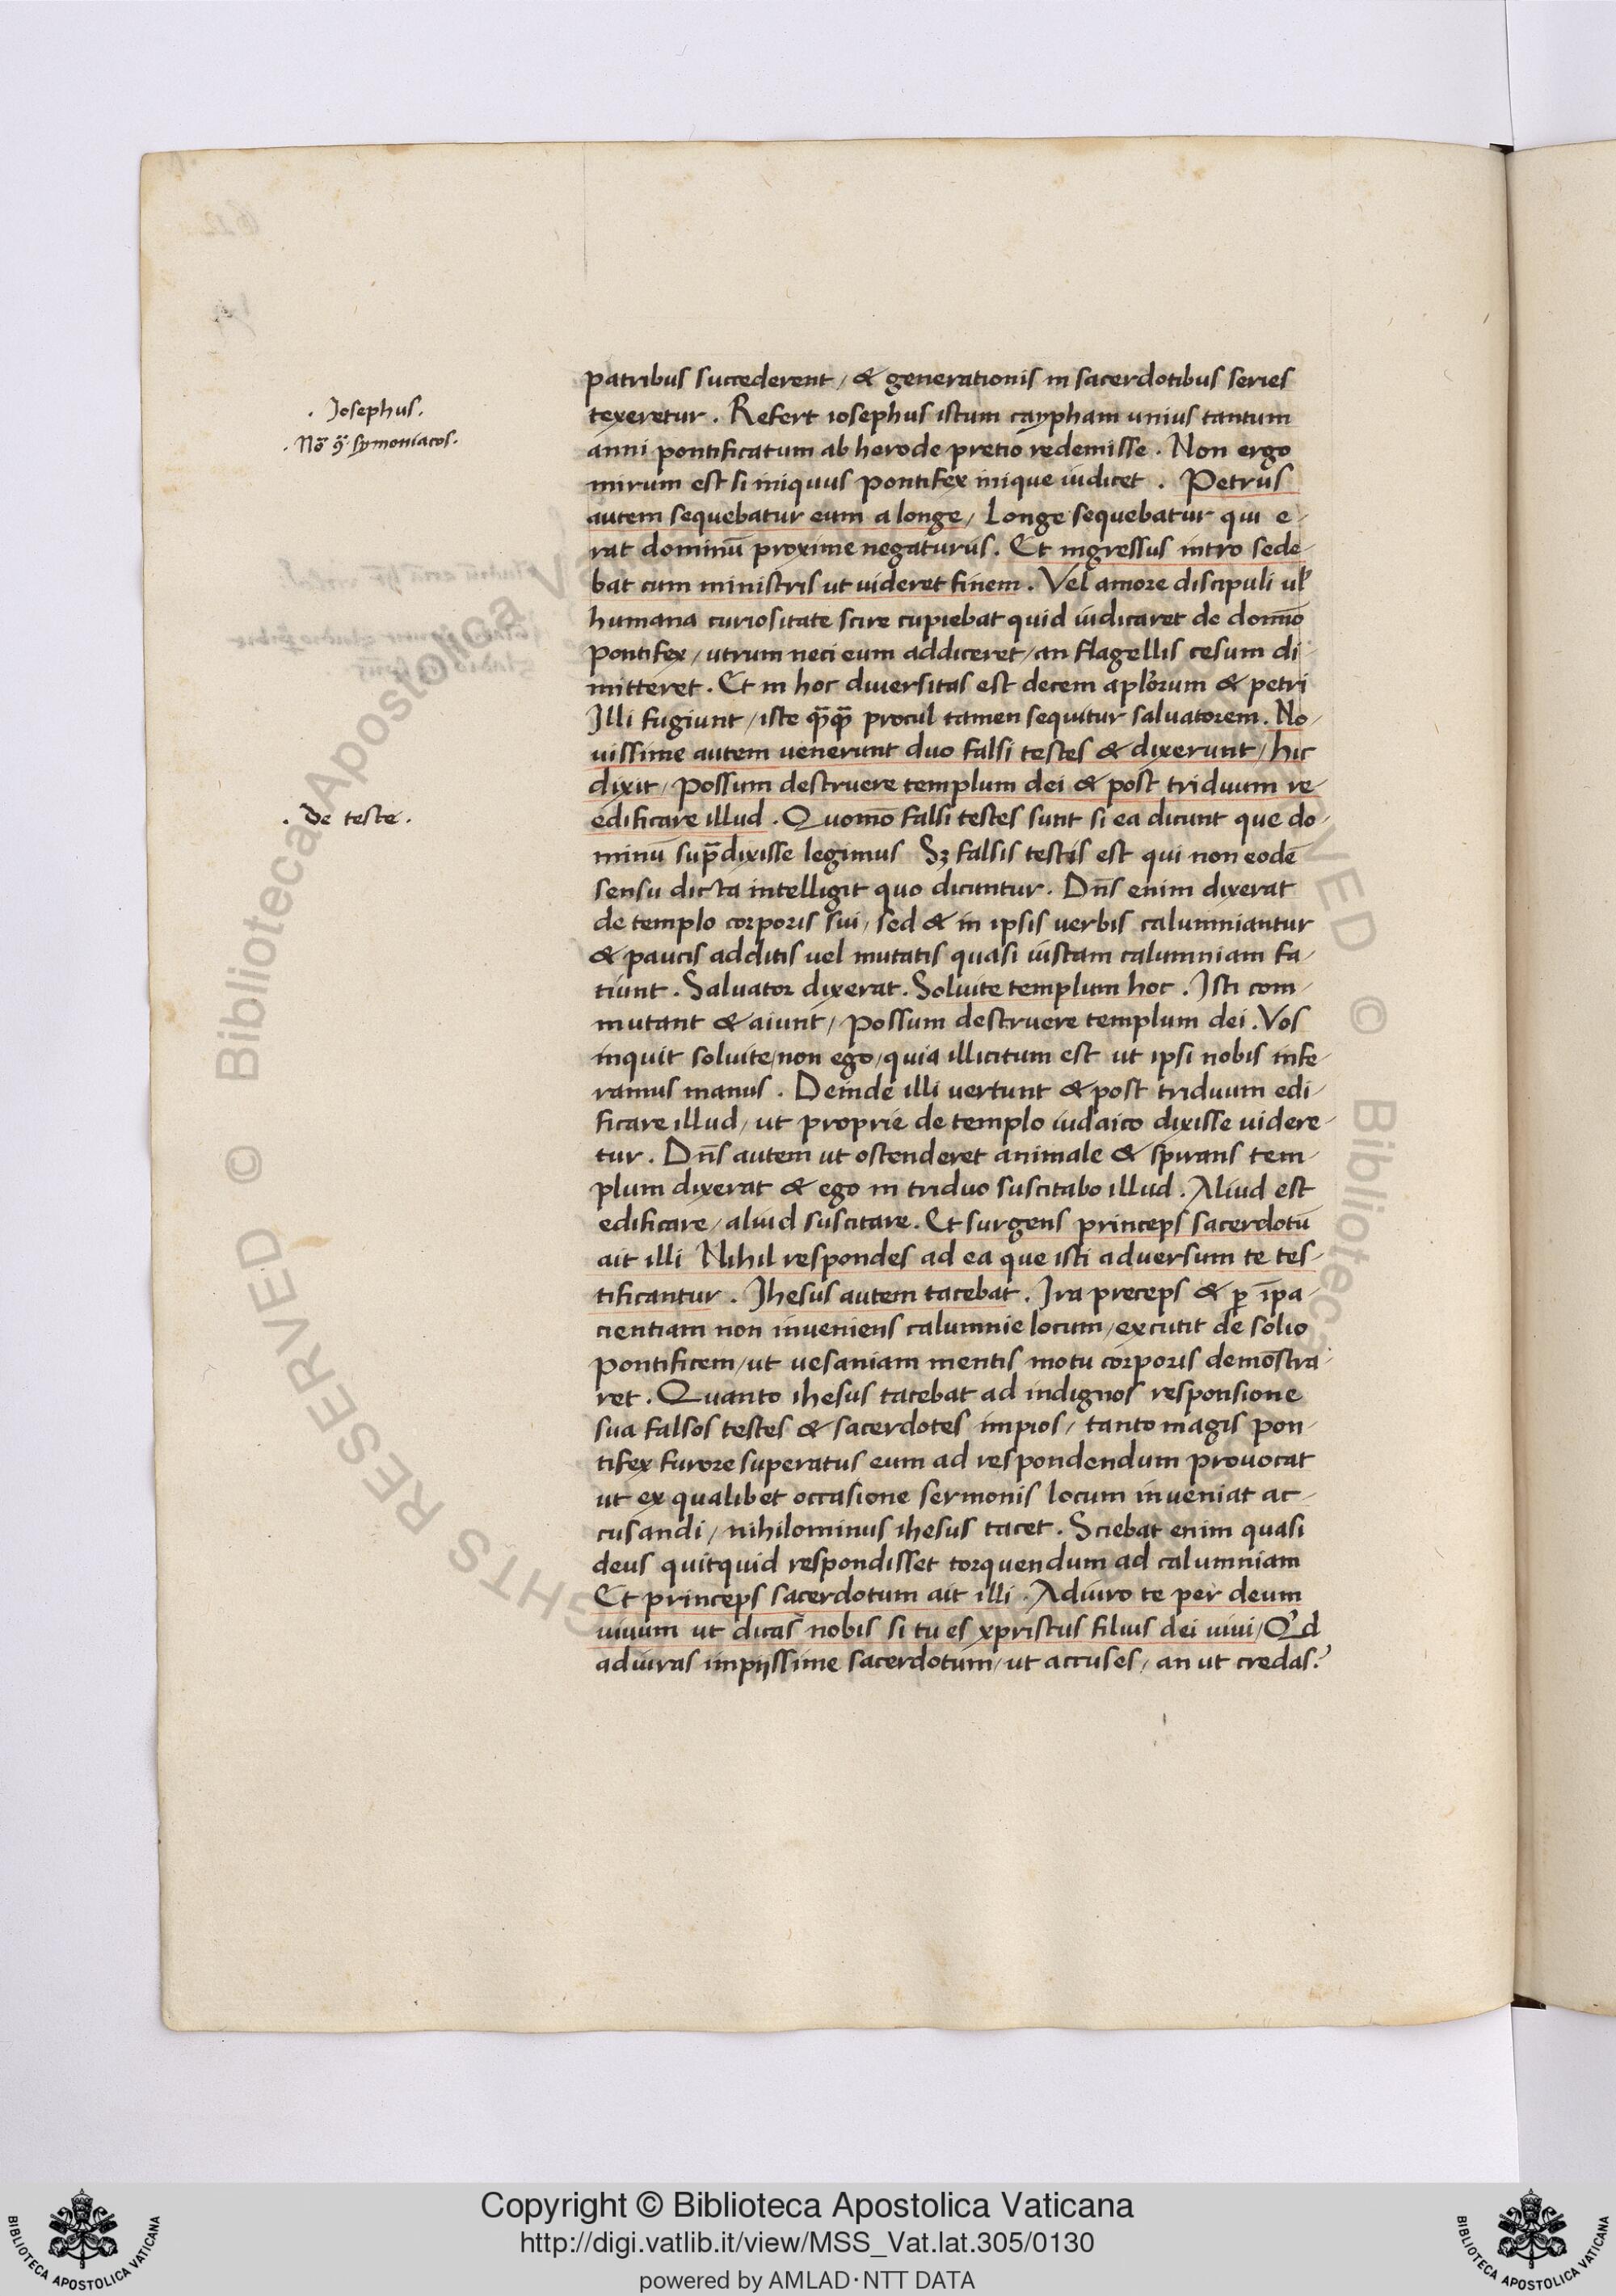 . Josephus.
. Nō 9̄ symoniacos.
patribus succederent / & generationis in sacerdotibus series
texeretur . Refert iosephus istum caypham unius tantum
anni pontificatum ab herode pretio redemisse . Non ergo
mirum est si iniquus pontifex inique iudicet . Petrus
autem sequebatur eum a longe / Longe sequebatur qui e-
rat dominū proxime negaturus . Et ingressus intro sede-
bat cum ministris ut uideret finem . Vel amore discipuli ul'
humana curiositate scire cupiebat quid iudicaret de domīo
pontifex / utrum neci eum addiceret / an flagellis cesum di-
mitteret . Et in hoc diuersitas est decem apl'orum & petri
Illi fugiunt / iste q̄q̄ procul tamen sequitur saluatorem . No-
uissime autem uenerunt duo falsi testes & dixerunt / hic
dixit / Possum destruere templum dei & post triduum re
. De teste .
edificare illud . Quomō falsi testes sunt si ea dicunt que do-
minū sup̄dixisse legimus Sꝫ falsis testis est qui non eodē
sensu dicta intelligit quo dicuntur . Dn̄s enim dixerat
de templo corporis sui / sed & in ipsis uerbis calumniantur
& paucis additis uel mutatis quasi iustam calumniam fa-
tiunt . Saluator dixerat . Soluite templum hoc . Isti com-
mutant & aiunt / Possum destruere templum dei . Vos
inquit soluite / non ego / quia illicitum est ut ipsi nobis infe-
ramus manus . Deinde illi uertunt & post triduum edi-
ficare illud / ut proprie de templo iudaico dixisse uidere-
tur . Dn̄s autem ut ostenderet animale & spirans tem-
plum dixerat & ego in triduo suscitabo illud . Aliud est
edificare / aliud suscitare . Et surgens princeps sacerdotū
ait illi Nihil respondes ad ea que isti aduersum te tes-
tificantur . Jhesus autem tacebat . Ira preceps & ꝑ īpa-
cientiam non inueniens calumnie locum / excutit de solio
pontificem / ut uesaniam mentis motu corporis demōstra-
ret . Quanto ihesus tacebat ad indignos responsione
sua falsos testes & sacerdotes impios / tanto magis pon-
tifex furore superatus eum ad respondendum prouocat
ut ex qualibet occasione sermonis locum inueniat ac-
cusandi / nihilominus ihesus tacet . Sciebat enim quasi
deus quitquid respondisset torquendum ad calumniam
Et princeps sacerdotum ait illi . Adiuro te per deum
uiuum ut dicas nobis si tu es xpristus filius dei uiui / Qd
adiuras impijssime sacerdotum / ut accuses / an ut credas ?
© Biblioteca Apostolica Vaticana
RIGHTS RESERVED
© Biblioteca
BIBLIOTECA APOSTOLICA VATICANA
Copyright © Biblioteca Apostolica Vaticana
http://digi.vatlib.it/view/MSS_Vat.lat.305/0130
powered by AMLAD·NTT DATA
BIBLIOTECA APOSTOLICA VATICANA